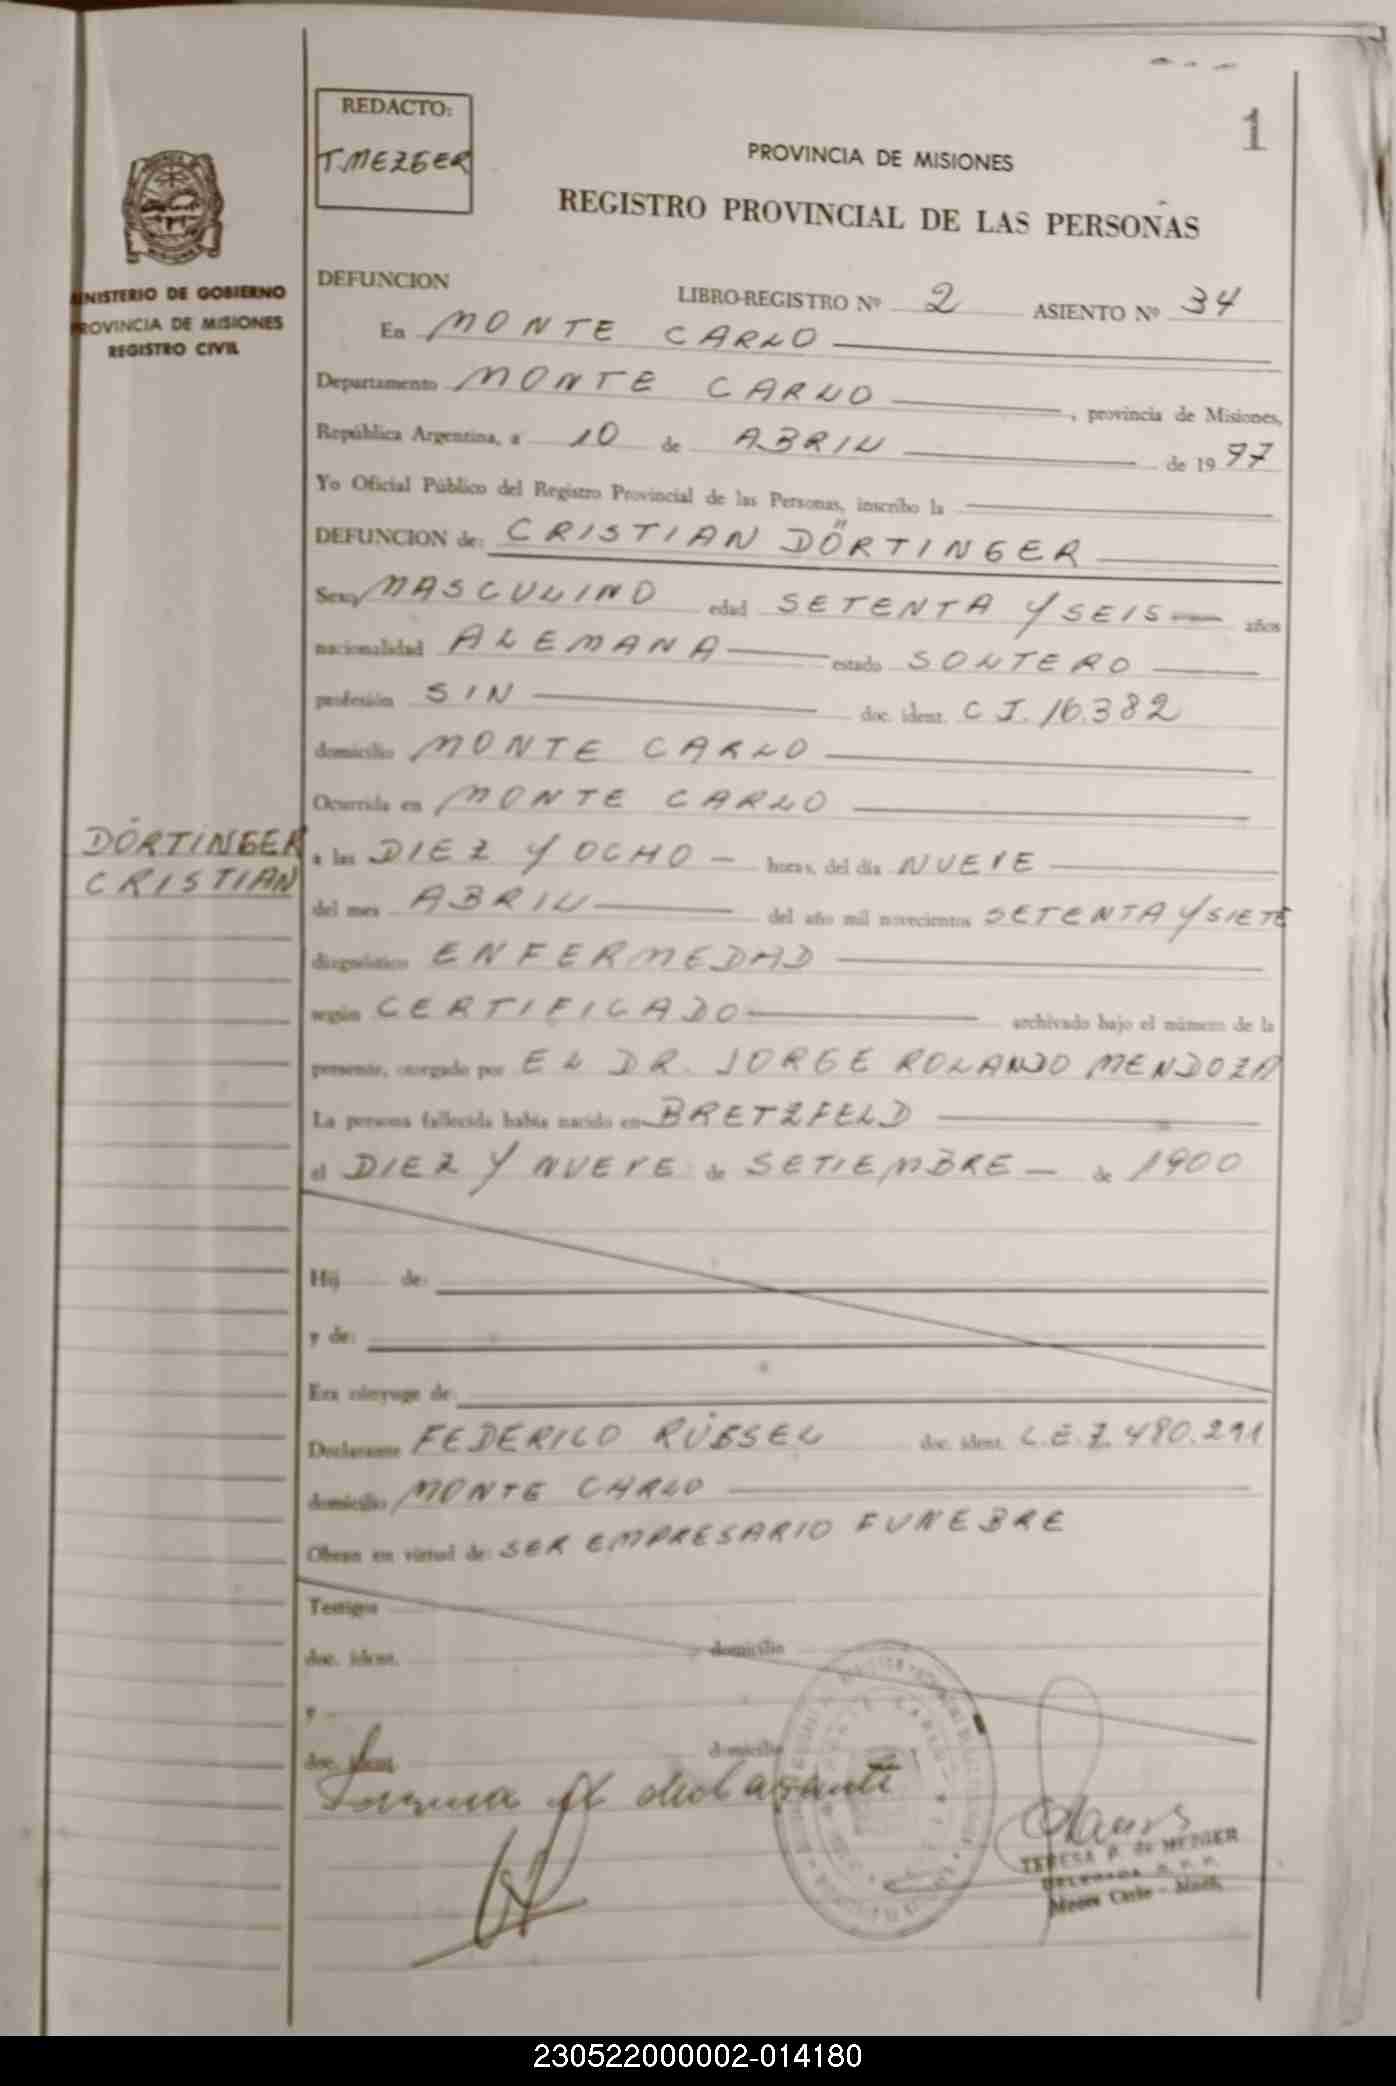 1
REDACTO:
T. MEZGER
PROVINCIA DE MISIONES
REGISTRO PROVINCIAL DE LAS PERSONAS
MINISTERIO DE GOBIERNO
PROVINCIA DE MISIONES
REGISTRO CIVIL
DEFUNCION
LIBRO-REGISTRO Nº 2 ASIENTO Nº 34
En MONTE CARLO
Departamento MONTE CARLO, provincia de Misiones,
República Argentina, a 10 de ABRIL de 1977
Yo Oficial Público del Registro Provincial de las Personas, inscribo la
DEFUNCION de: CRISTIAN DÖRTINGER
Sexo MASCULINO edad SETENTA Y SEIS años
nacionalidad ALEMANA estado SOLTERO
profesión SIN doc. ident. C I. 16.382
domicilio MONTE CARLO
Ocurrida en MONTE CARLO
DÖRTINGER
CRISTIAN
a las DIEZ Y OCHO horas, del día NUEVE
del mes ABRIL del año mil novecientos SETENTA Y SIETE
diagnóstico ENFERMEDAD
según CERTIFICADO archivado bajo el número de la
presente, otorgado por EL DR. JORGE ROLANDO MENDOZA
La persona fallecida había nacido en BRETZFELD
el DIEZ Y NUEVE de SETIEMBRE de 1900
Hij de:
y de:
Era cónyuge de:
Declarante FEDERICO doc. ident. L.E. 7.480.291
domicilio MONTE CARLO
Obran en virtud de: SER EMPRESARIO FUNEBRE
Testigos
doc. ident. domicilio
y
doc. ident. domicilio
Firma el declarante
TERESA P. de MEZGER
DELEGADA R. P. P.
Monte Carlo - Mnes.
230522000002-014180